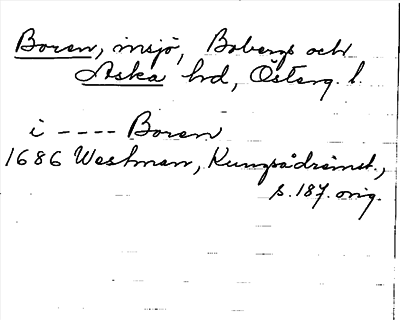 Boren, insjö, Bobergs och
Aska hd, Österg. l.
i ---- Boren
1686 Westman, Kungsådrëmet.,
s. 187. orig.